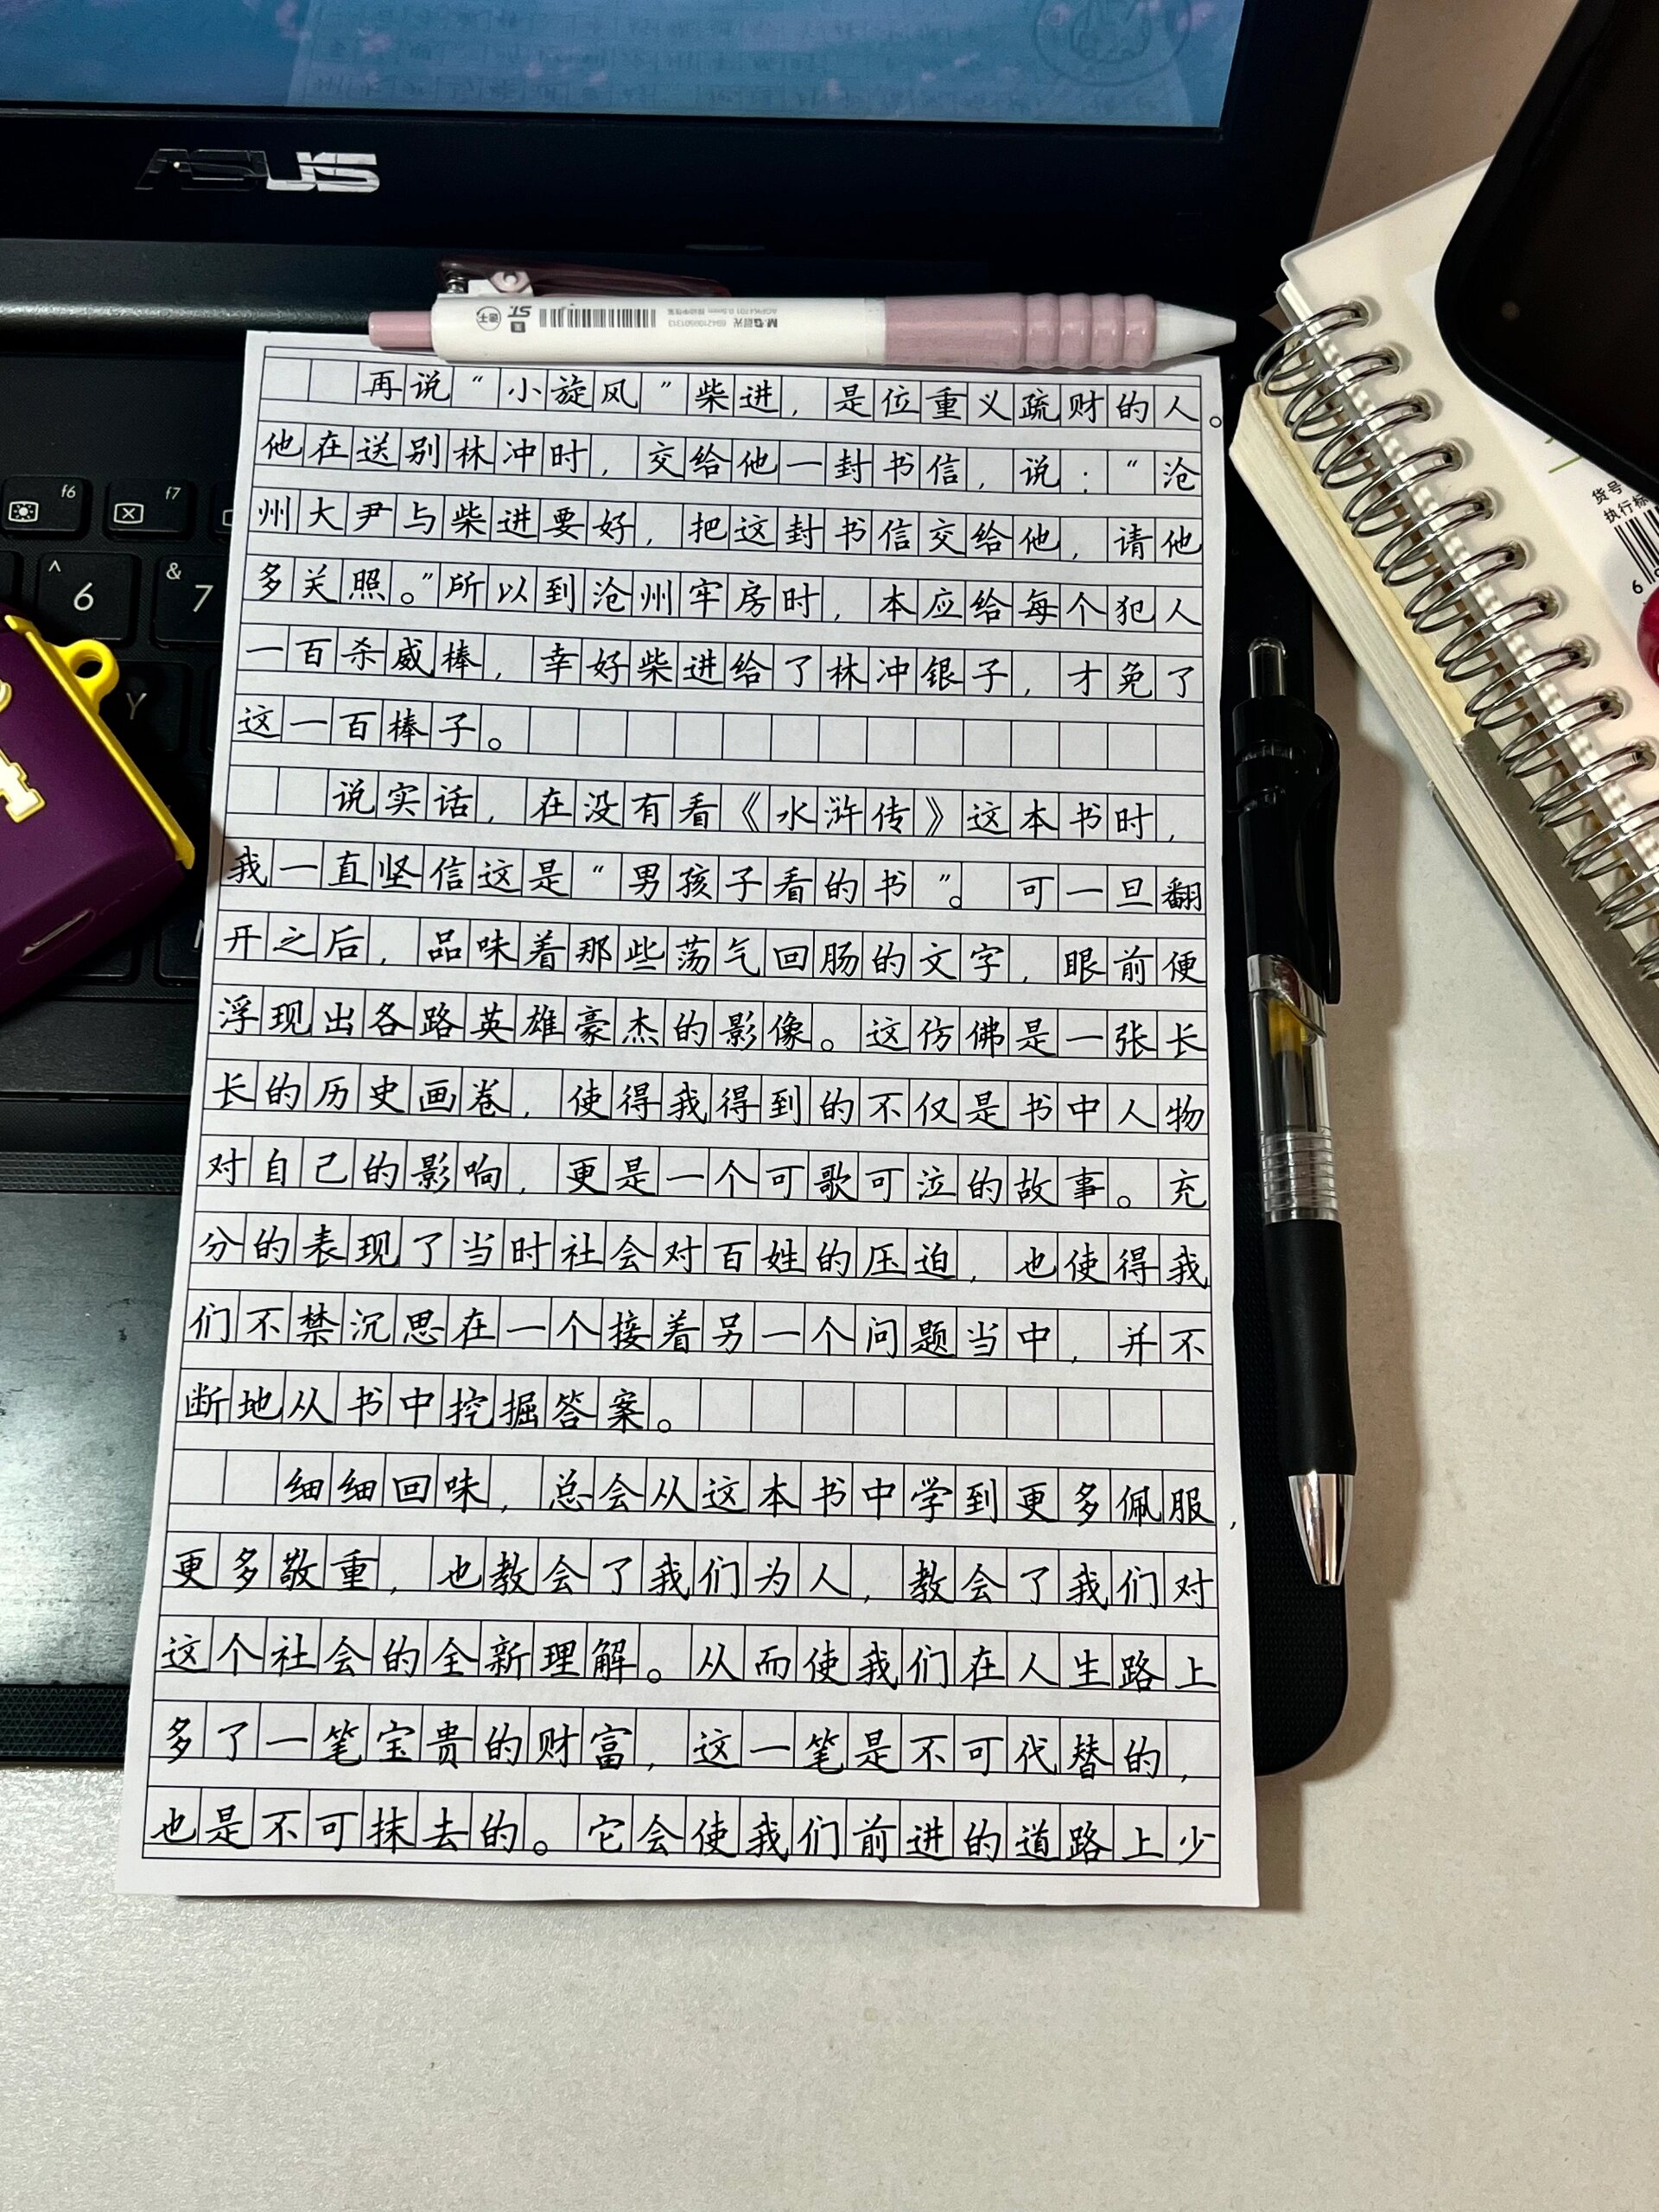 ASUS
M&G 晨光 AGPK4701 0.5mm 按动中性笔
6942109501313
ST.
速干
再说“小旋风”柴进，是位重义疏财的人。
他在送别林冲时，交给他一封书信，说：“沧
州大尹与柴进要好，把这封书信交给他，请他
多关照。”所以到沧州牢房时，本应给每个犯人
一百杀威棒，幸好柴进给了林冲银子，才免了
这一百棒子。
说实话，在没有看《水浒传》这本书时，
我一直坚信这是“男孩子看的书”。可一旦翻
开之后，品味着那些荡气回肠的文字，眼前便
浮现出各路英雄豪杰的影像。这仿佛是一张长
长的历史画卷，使得我得到的不仅是书中人物
对自己的影响，更是一个可歌可泣的故事。充
分的表现了当时社会对百姓的压迫，也使得我
们不禁沉思在一个接着另一个问题当中，并不
断地从书中挖掘答案。
细细回味，总会从这本书中学到更多佩服，
更多敬重，也教会了我们为人，教会了我们对
这个社会的全新理解。从而使我们在人生路上
多了一笔宝贵的财富，这一笔是不可代替的，
也是不可抹去的。它会使我们前进的道路上少
f6
f7
^
6
&
7
Y
货号
执行标